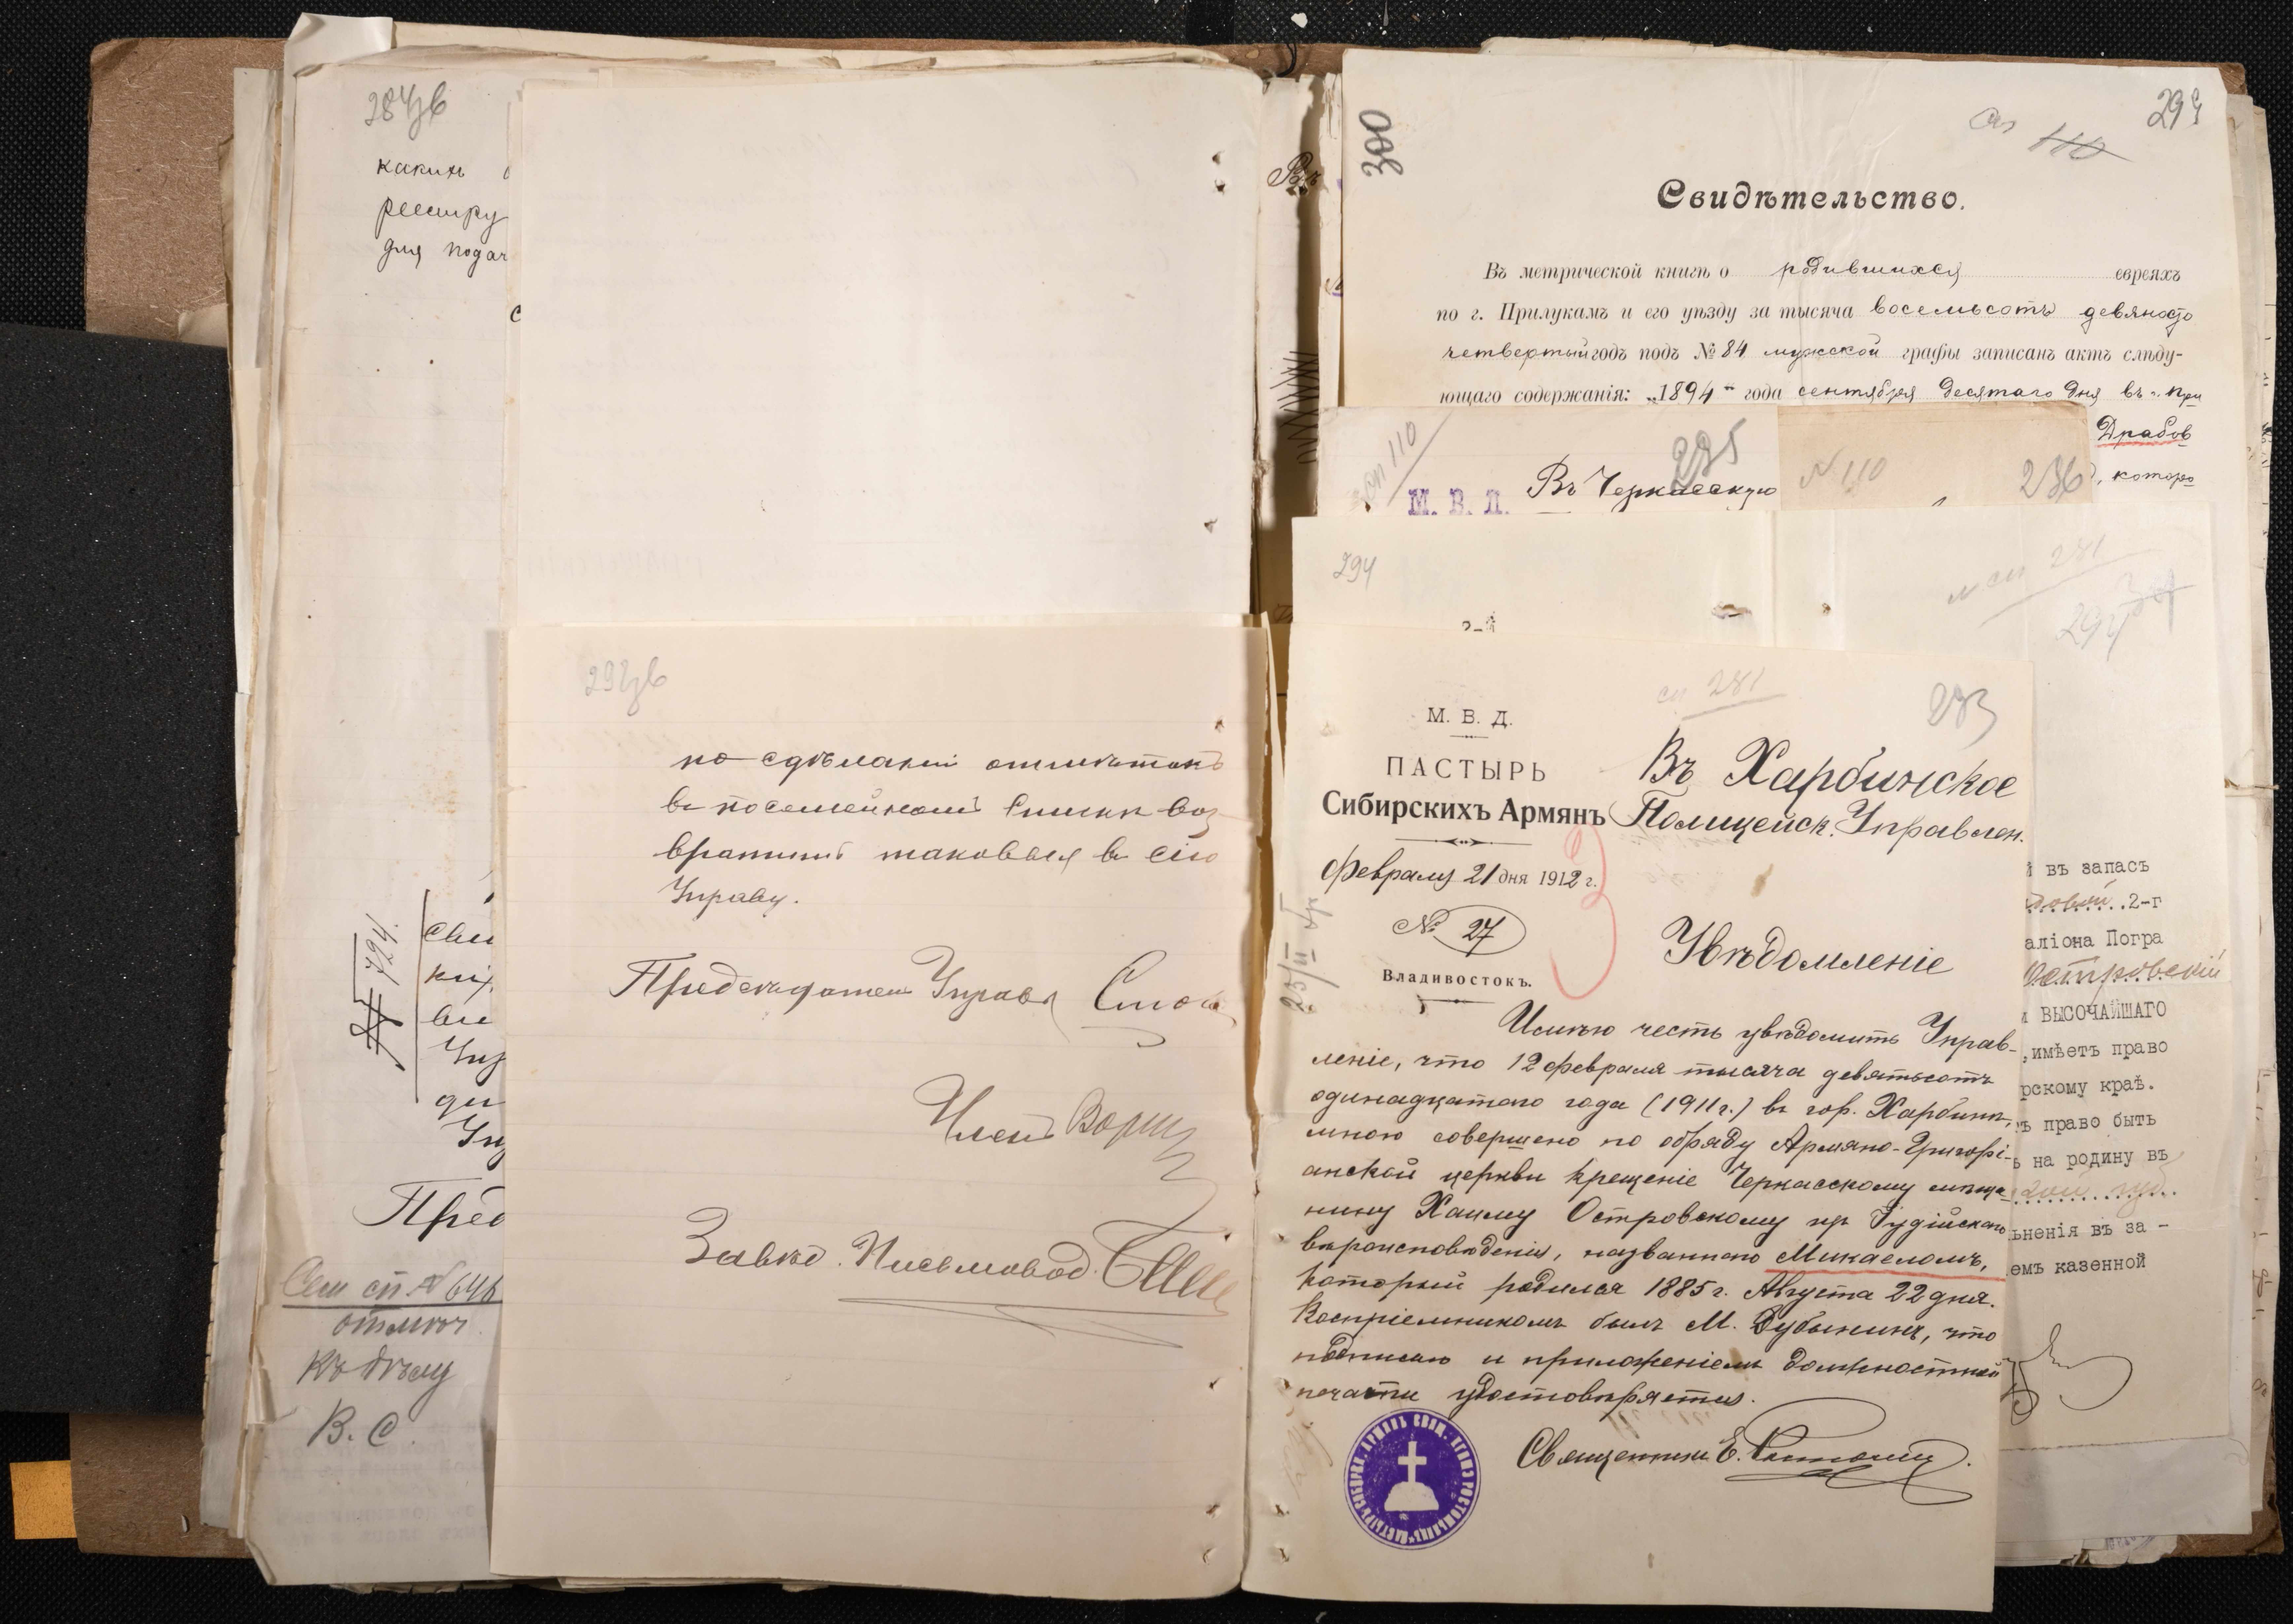 284об
какихъ
реестру
для подач
724.
Сем сп № 646
отмеч
Къ дѣлу
В. С.
Пред
292об
по сдѣлании отмѣтокъ
въ посемейномъ списки воз-
вратитъ таковыя въ сію
Управу.
Председатель Управы
Членъ
Завѣд. Письмовод.
300
294
110
Свидѣтельство.
Въ метрической книгѣ о родившихся евреяхъ
по г. Прилукамъ и его уѣзду за тысяча восемьсотъ девяносто
четвертый годъ подъ № 84 мужской графы записанъ актъ слѣду-
ющаго содержанія: „1894" года сентября десятаго дня въ г. При
Драбов
, которо
сп 110
295
М. В. Д.
Въ Черкасскую
№ 110
296
294
сп 281
й въ запасъ
довой 2-г
аліона Погра
Островскій
и ВЫСОЧАЙШАГО
,имѣетъ право
рскому краѣ.
ъ право быть
ь на родину въ
ьненія въ за -
емъ казенной
сп 281
293
М. В. Д.
ПАСТЫРЬ
Сибирскихъ Армянъ
Февраля 21 дня 1912 г.
№ 27
Владивостокъ.
Въ Харбинское
Полицейск. Управлен.
Увѣдомленіе
Имѣю честь увѣдомить Управ-
леніе, что 12 февраля тысяча девятьсотъ
одинадцатаго года (1911 г.) въ гор. Харбинѣ,
мною совершено по обряду Армяно-Григорі-
анской церкви крещеніе Черкасскому мѣща-
нину Хаиму Островскому изъ Іудійскаго
вѣроисповѣденія, названнаго Микаеломъ,
который родился 1885 г. Августа 22 дня.
Воспріемникомъ былъ М. Дубынинъ, что
подписью и приложеніемъ должностной
печати удостовѣряется.
Священникъ Е.